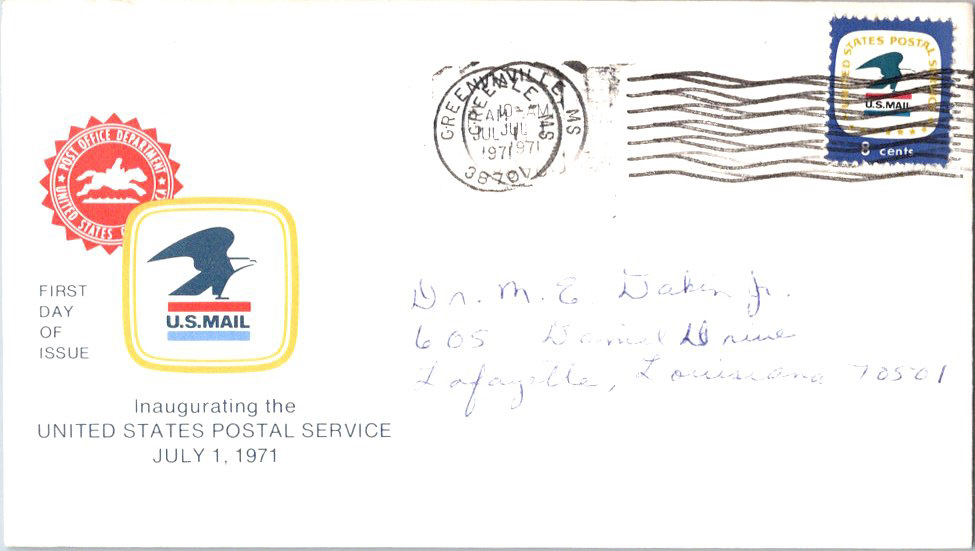 POST OFFICE DEPARTMENT
UNITED STATES
U.S.MAIL
FIRST
DAY
OF
ISSUE
Inaugurating the
UNITED STATES POSTAL SERVICE
JULY 1, 1971
GREENVILLE, MS
10 AM
JUL
1971
UNITED STATES POSTAL SERVICE
U.S.MAIL
8 cents
Dr. M. E. Dakin Jr.
605 Daniel Drive
Lafayette, Louisiana 70501